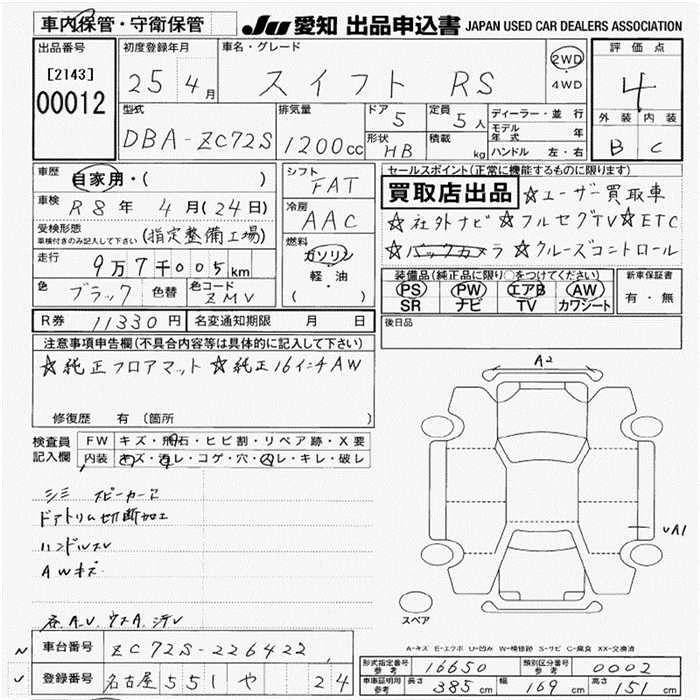 車内保管・守衛保管
JU 愛知 出品申込書 JAPAN USED CAR DEALERS ASSOCIATION
出品番号
[2143]
00012
初度登録年月
25 4月
車名・グレード
スイフト RS
2WD
・
4WD
評価点
4
外装 内装
B C
型式
DBA-ZC72S
排気量
1200cc
ドア
5
定員
5人
形状
HB
積載
kg
ディーラー・並行
モデル年式 年
ハンドル 左・右
車歴
自家用・( )
車検
R8年 4月(24日)
受検形態
車検付きのみ記入して下さい
(指定整備工場)
走行
9万7千005km
色
ブラック
色替
色コード
ZMV
シフト
FAT
冷房
AAC
燃料
ガソリン
軽・油
( )
セールスポイント(正常に機能するものに限ります)
買取店出品 ☆ユーザー買取車
☆社外ナビ ☆フルセグTV ☆ETC
☆バックカメラ ☆クルーズコントロール
装備品(純正品に限り○をつけてください)
PS PW エアB AW
SR ナビ TV カワシート
新車保証書
有・無
R券 11330円
名変通知期限 月 日
後日品
注意事項申告欄(不具合内容等は具体的に記入して下さい)
☆純正フロアマット ☆純正16インチAW
修復歴 有 (箇所 )
検査員
記入欄
FW キズ・飛石・ヒビ割・リペア跡・X要
内装 キズ・汚レ・コゲ・穴・凹レ・キレ・破レ
シミ スピーカー穴
ドアトリム切断加工
ハンドルスレ
AWキズ
A2
UA1
スペア
A-キズ E-エクボ U-凹み W-補修跡 S-サビ C-腐食 XX-交換済
車台番号
ZC72S-226422
登録番号
名古屋 551 や 24
形式指定番号
参考
16650
類別区分番号
参考
0002
車庫証明用
参考
長さ 385cm 幅 169cm 高さ 151cm